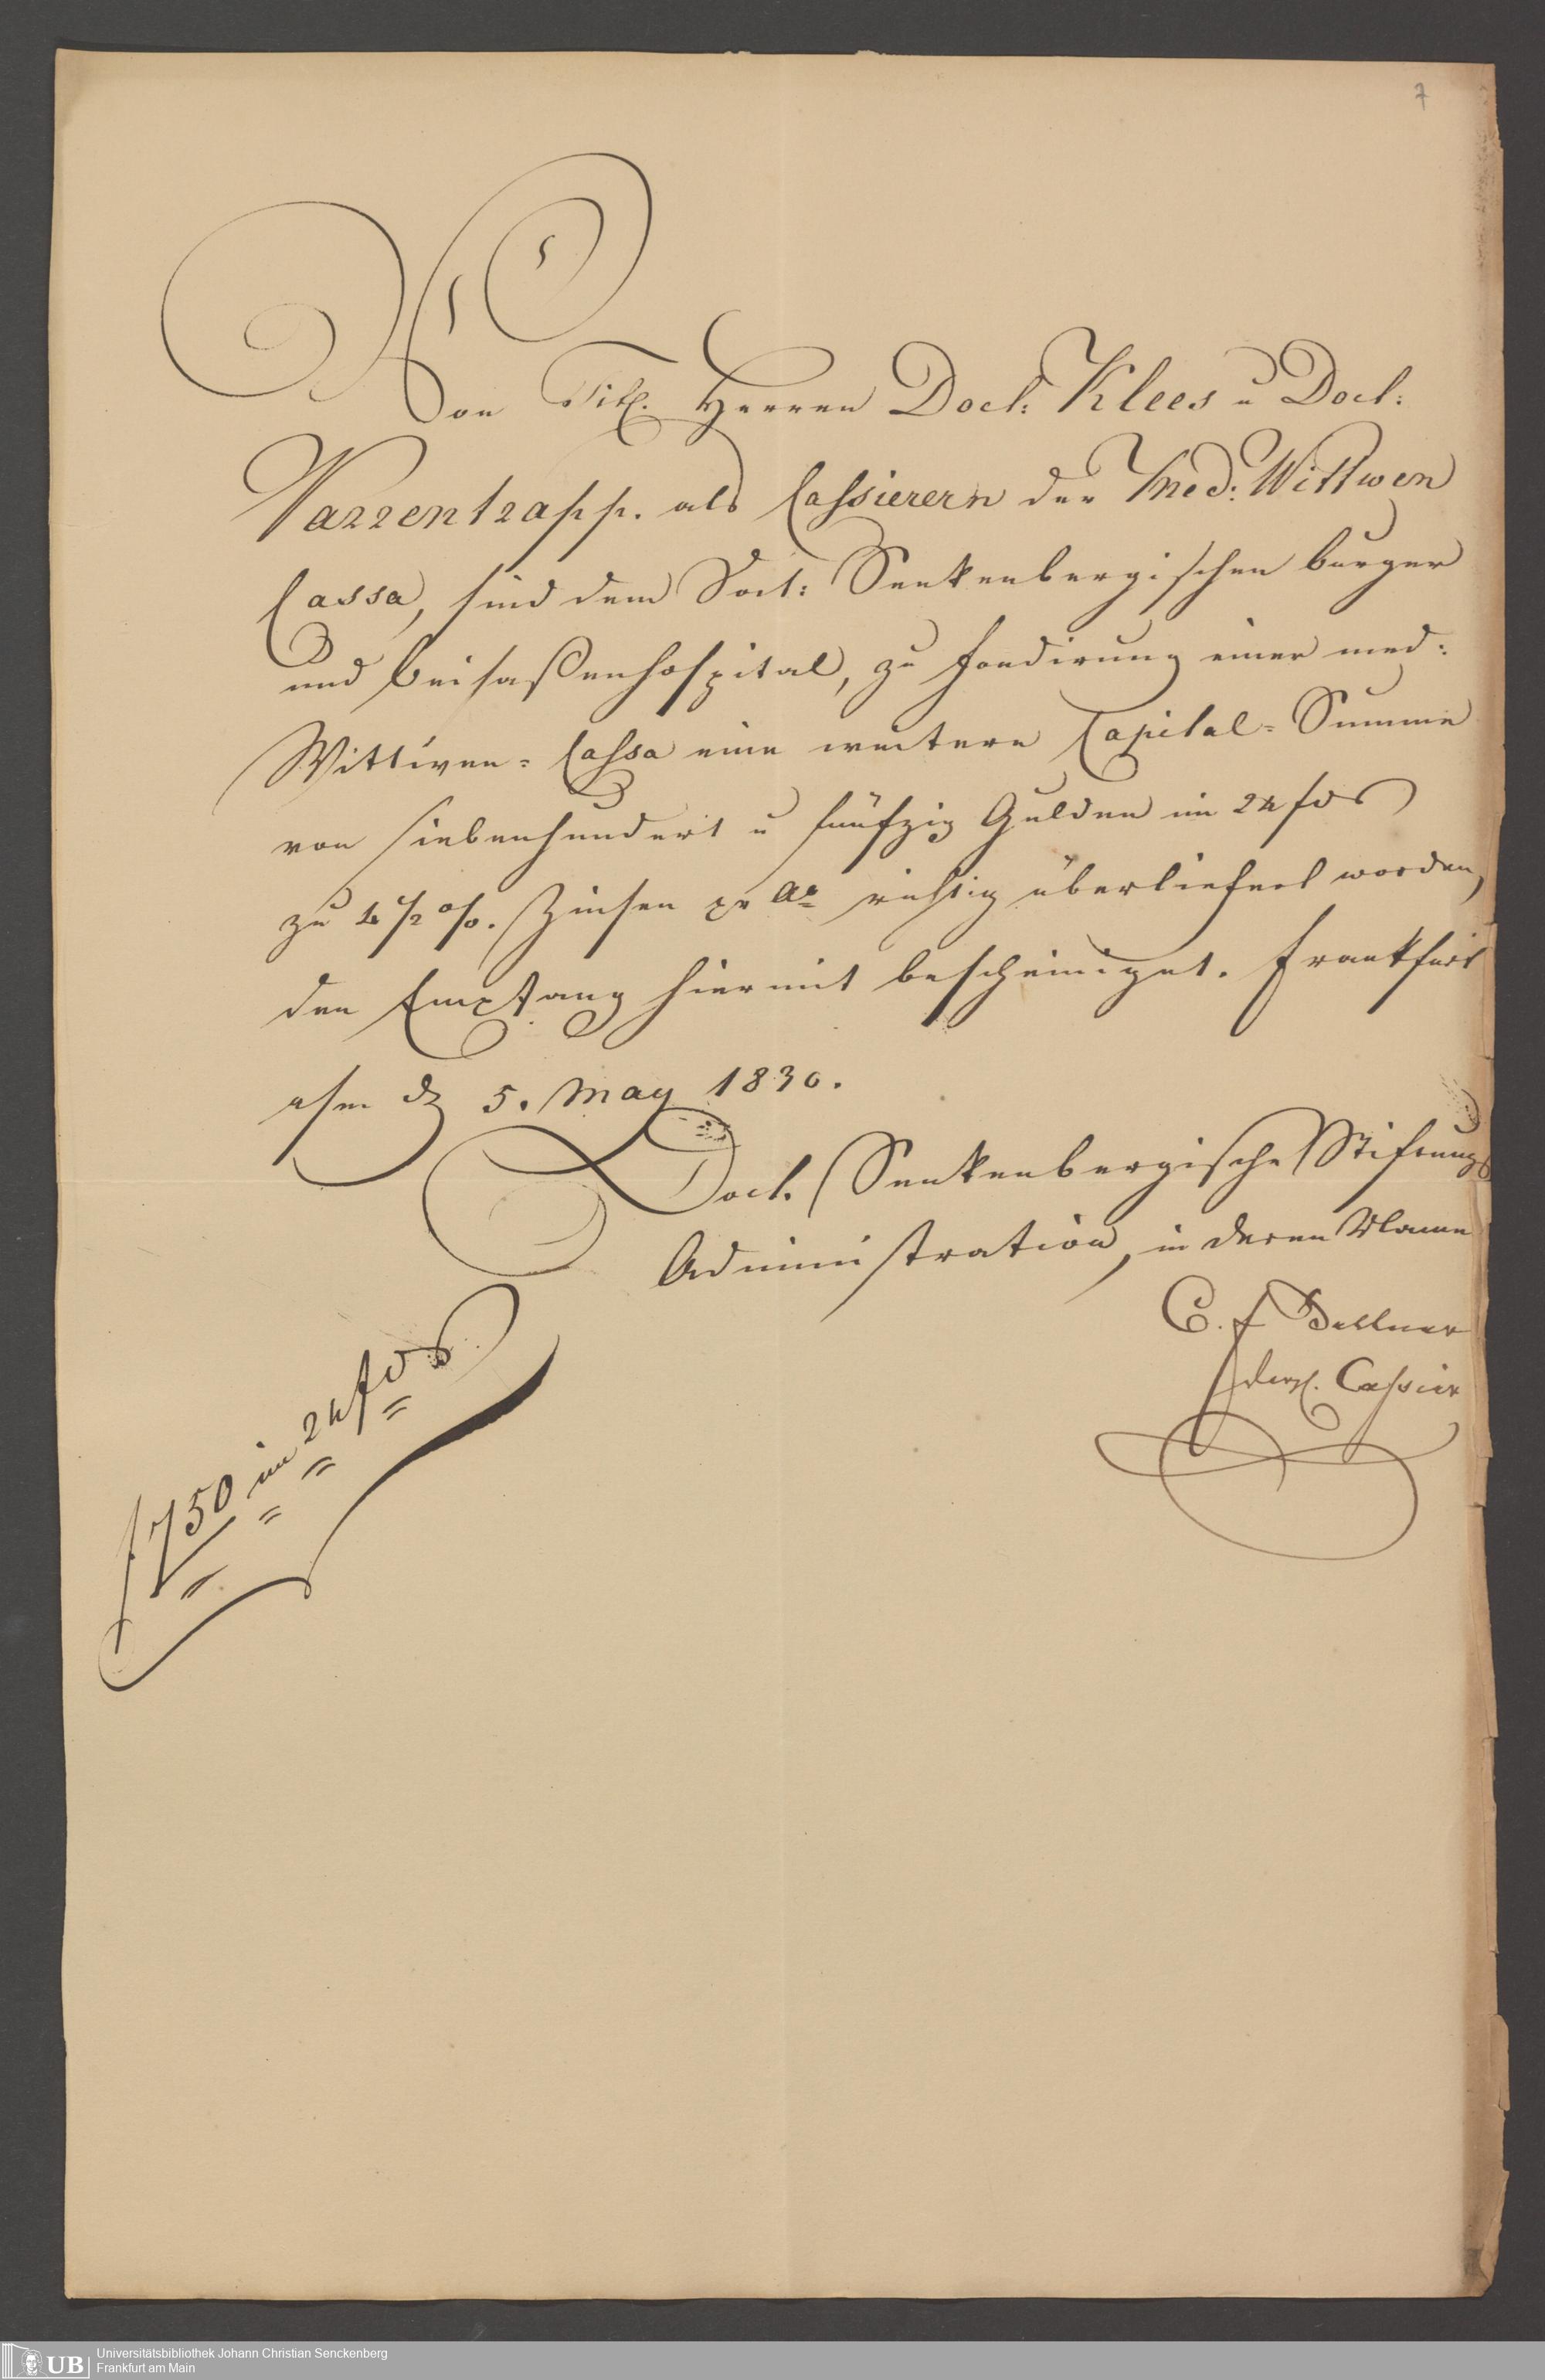 7
Von Titl. Herren Doct: Klees u Doct:
Varrentrapp. als Cassierern der Med: Wittwen
Cassa, sind dem Doct: Senkenbergischen burger
und beisaßenhospital, zu fondirung einer med:
Wittwen= Cassa eine weitere Capital= Summe
von siebenhundert u fünfzig Gulden im 24 f
zu 4 1/2 %. Zinsen pr Ao richtig überliefert worden,
den Empfang hiermit bescheiniget. Frankfurt
a/m d 5. May 1830.
Doct. Senkenbergische Stiftungs
Administration, in deren Name
C. F
Cassier
f 750 im 24 f
UB
Universitätsbibliothek Johann Christian Senckenberg
Frankfurt am Main